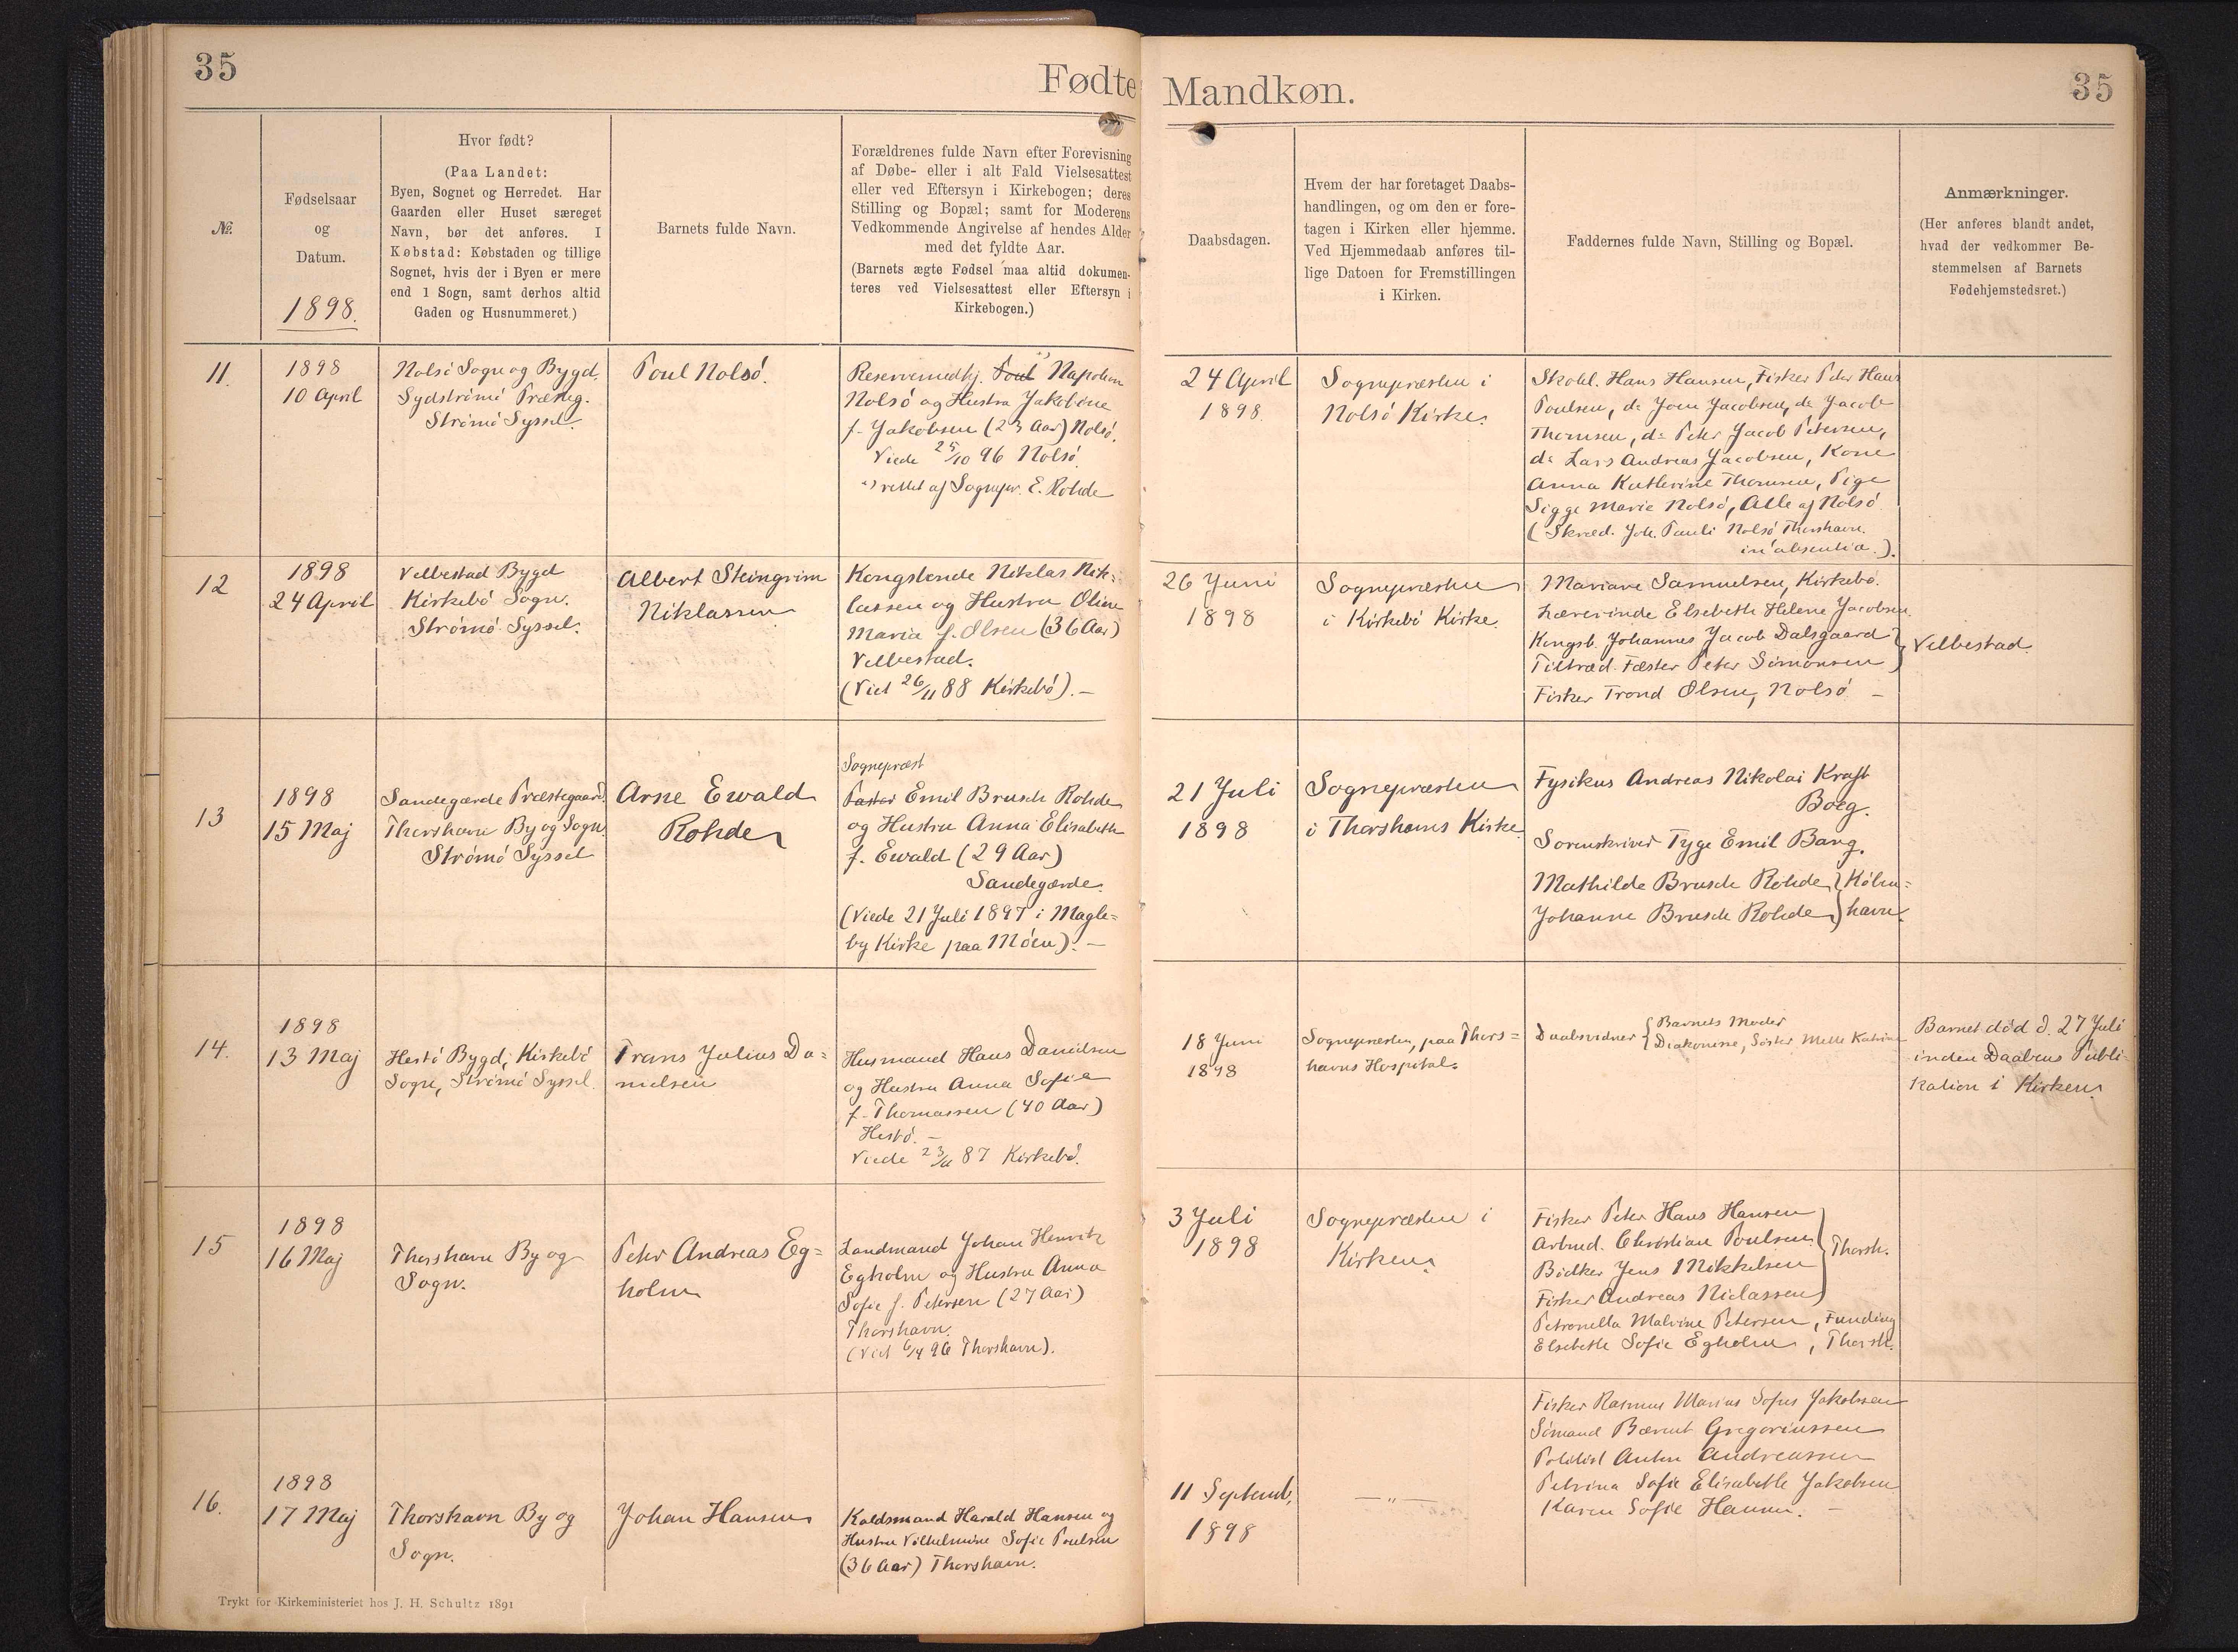 35
Fødte
Mandkøn.
35
№.
Fødselsaar
og
Datum.
1898.
Hvor født?
(Paa Landet:
Byen, Sognet og Herredet. Har
Gaarden eller Huset særeget
Navn, bør det anføres. I
Købstad: Købstaden og tillige
Sognet, hvis der i Byen er mere
end 1 Sogn, samt derhos altid
Gaden og Husnummeret.)
Barnets fulde Navn.
Forældrenes fulde Navn efter Forevisning
af Døbe- eller i alt Fald Vielsesattest
eller ved Eftersyn i Kirkebogen; deres
Stilling og Bopæl; samt for Moderens
Vedkommende Angivelse af hendes Alder
med det fyldte Aar.
(Barnets ægte Fødsel maa altid dokumen-
teres ved Vielsesattest eller Eftersyn i
Kirkebogen.)
Daabsdagen.
Hvem der har foretaget Daabs-
handlingen, og om den er fore-
tagen i Kirken eller hjemme.
Ved Hjemmedaab anføres til-
lige Datoen for Fremstillingen
i Kirken.
Faddernes fulde Navn, Stilling og Bopæl.
Anmærkninger.
(Her anføres blandt andet,
hvad der vedkommer Be-
stemmelsen af Barnets
Fødehjemstedsret.)
11.
1898
10 April
Nolsö Sogn og Bygd.
Sydströmö Præsteg.
Strömö Syssel.
Poul Nolsö.
Reservemedhj. Poul Napoleon
Nolsö og Hustru Jakobine
f. Jakobsen (23 Aar) Nolsö.
Viede 25/10 96 Nolsö.
rettet af Sognepr. E. Rohde
24 April
1898
Sognepræsten i
Nolsö Kirke.
Skohl. Hans Hansen, Fisker Peter Hans
Poulsen, do Joen Jacobsen, do Jacob
Thomsen, do Peter Jacob Petersen,
do Lars Andreas Jacobsen, Kone
Anna Kathrine Thomsen, Pige
Sigge Marie Nolsö, Alle af Nolsö
(Skræd. Joh. Pauli Nolsö Thorshavn.
in absentia.).
12
1898
24 April
Velbestad Bygd
Kirkebö Sogn.
Strömö Syssel.
Albert Steingrim
Niklassen
Kongsbonde Niklas Nik=
lassen og Hustru Oline
Maria f. Olsen (36 Aar)
Velbestad.
(Viet 26/11 88 Kirkebö). —
26 Juni
1898
Sognepræsten
i Kirkebö Kirke.
Mariane Samuelsen, Kirkebö.
Lærerinde Elsebeth Helene Jacobsen
Kongsb. Johannes Jacob Dalsgaard
Tiltræd. Fæster Peter Simonsen
Fisker Trond Olsen, Nolsö —
Velbestad.
13
1898
15 Maj
Sandegærde Præstegaard.
Thorshavn By og Sogn.
Strömö Syssel
Arne Ewald
Rohde
Sognepræst
Pastor Emil Brusch Rohde
og Hustru Anna Elisabeth
f. Ewald (29 Aar)
Sandegærde.
(Viede 21 Juli 1897 i Magle=
by Kirke paa Möen). —
21 Juli
1898
Sognepræsten
i Thorshavns Kirke
Fysikus Andreas Nikolai Kraft
Boeg.
Sorenskriver Tyge Emil Bang.
Mathilde Brusch Rohde
Johanne Brusch Rohde
} Köben=
havn.
14.
1898
13 Maj
Hestö Bygd, Kirkebö
Sogn, Strömö Syssel.
Frans Julius Da=
nielsen
Husmand Hans Danielsen
og Hustru Anna Sofie
f. Thomassen (40 Aar)
Hestö. —
Viede 23/11 87 Kirkebö.
18 Juni
1898
Sognepræsten, paa Thors=
havns Hospital.
Daabsvidner { Barnets Moder
Diakonisse, Söster Mette Katrine
Barnet död d. 27 Juli
inden Daabens Publi-
kation i Kirken.
15
1898
16 Maj
Thorshavn By og
Sogn.
Peter Andreas Eg=
holm
Landmand Johan Henrik
Egholm og Hustru Anna
Sofie f. Petersen (27 Aar)
Thorshavn.
(Viet 6/4 96 Thorshavn).
3 Juli
1898
Sognepræsten i
Kirken.
Fisker Peter Hans Hansen
Arbmd. Christian Poulsen
Bödker Jens Mikkelsen
Fisker Andreas Niclassen
} Thorsh.
Petronella Malvine Petersen, Funding
Elsebeth Sofie Egholm, Thorsh.
16.
1898
17 Maj
Thorshavn By og
Sogn.
Johan Hansen
Koldsmand Harald Hansen og
Hustru Vilhelmine Sofie Poulsen
(36 Aar) Thorshavn.
11 Septemb,
1898
—"—
Fisker Rasmus Marius Sofus Jakobsen
Sömand Bærent Gregoriussen
Politist Anton Andreassen
Petrina Sofie Elisabeth Jakobsen
Karen Sofie Hansen. —
Trykt for Kirkeministeriet hos J. H. Schultz 1891